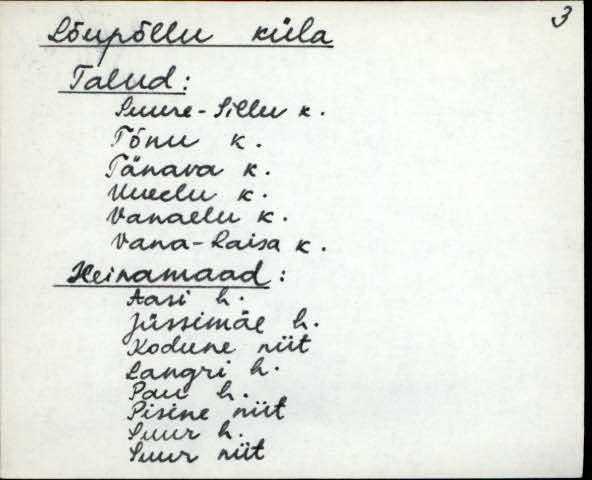 3
Lõupõllu küla
Talud:
Suure-Sillu k.
Tõnu k.
Tänava k.
Uuelu k.
Vanaelu k.
Vana-Laisa k.
Heinamaad:
Aasi h.
Jüssimäe h.
Kodune niit
Langri h.
Pau h.
Pisine niit
Suur h.
Suur niit